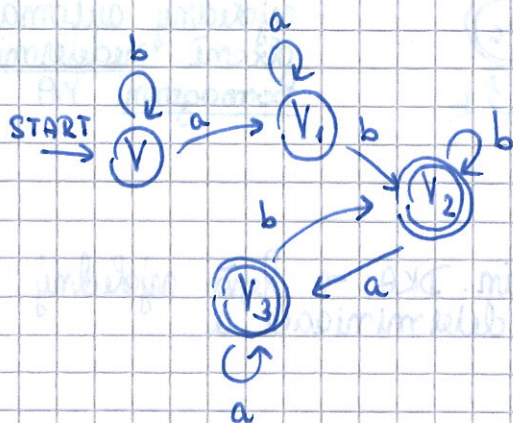 a
b
START
a
V
V₁
b
b
V₂
b
a
V₃
a